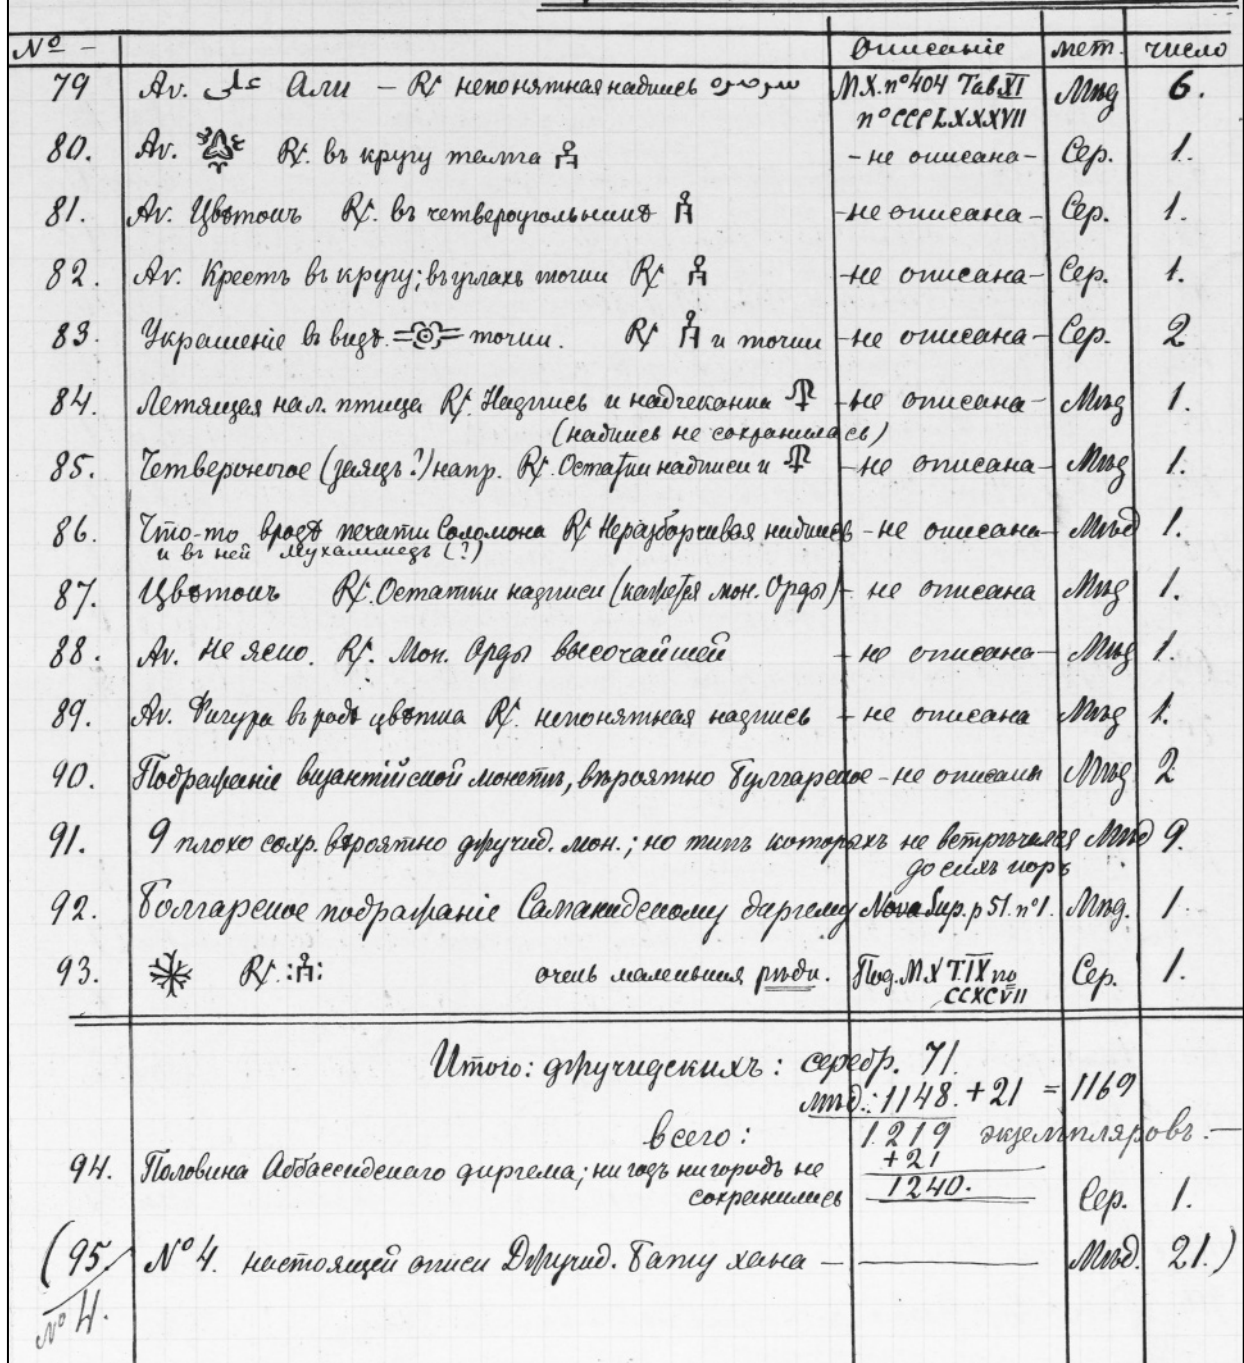 № — Описаніе мет. число
79 Av. علي Али — R/. непонятная надпись М.Х. n° 404 Таб. XI Мѣд 6.
n° CCCLXXXVII
80. Av. R/. въ кругу тамга - не описана - Сер. 1.
81. Av. Цвѣтокъ R/. въ четвероугольникѣ - не описана - Сер. 1.
82. Av. Крестъ въ кругу; въ углахъ точки R/. - не описана - Сер. 1.
83. Украшеніе въ видѣ точки. R/. и точки - не описана - Сер. 2
84. Летящая нал. птица R/. Надпись и надчеканка - не описана - Мѣд 1.
(надпись не сохранилась)
85. Четвероногое (заяцъ?) напр. R/. Остатки надписи и - не описана - Мѣд 1.
86. Что-то вродѣ печати Соломона R/. Неразборчивая надпись - не описана - Мѣд 1.
и въ ней Мухаммедъ (?)
87. Цвѣтокъ R/. Остатки надписи (кажется мон. Орды) - не описана Мѣд 1.
88. Av. не ясно. R/. Мон. Орды высочайшей - не описана - Мѣд 1.
89. Av. Фигура въ родѣ цвѣтка R/. непонятная надпись - не описана Мѣд 1.
90. Подражаніе византійской монетѣ, вѣроятно Булгарское - не описаны Мѣд 2
91. 9 плохо сохр. вѣроятно джучид. мон.; но типъ которыхъ не встрѣчался Мѣд 9.
до сихъ поръ
92. Болгарское подражаніе Саманидскому диргему Nova Sup. p 51. n° 1. Мѣд. 1.
93. R/. очень маленькая рѣдк. Под. М.Х Т. IX no Сер. 1.
CCXCVII
Итого: джучидскихъ: серебр. 71.
мѣд.: 1148. + 21 = 1169
всего: 1219 экземпляровъ. —
+ 21
94. Половина Аббассидскаго диргема; ни годъ ни городъ не 1240.
сохранились Сер. 1.
(95. № 4. настоящей описи Джучид. Бату хана — Мѣд. 21.)
№ 4.